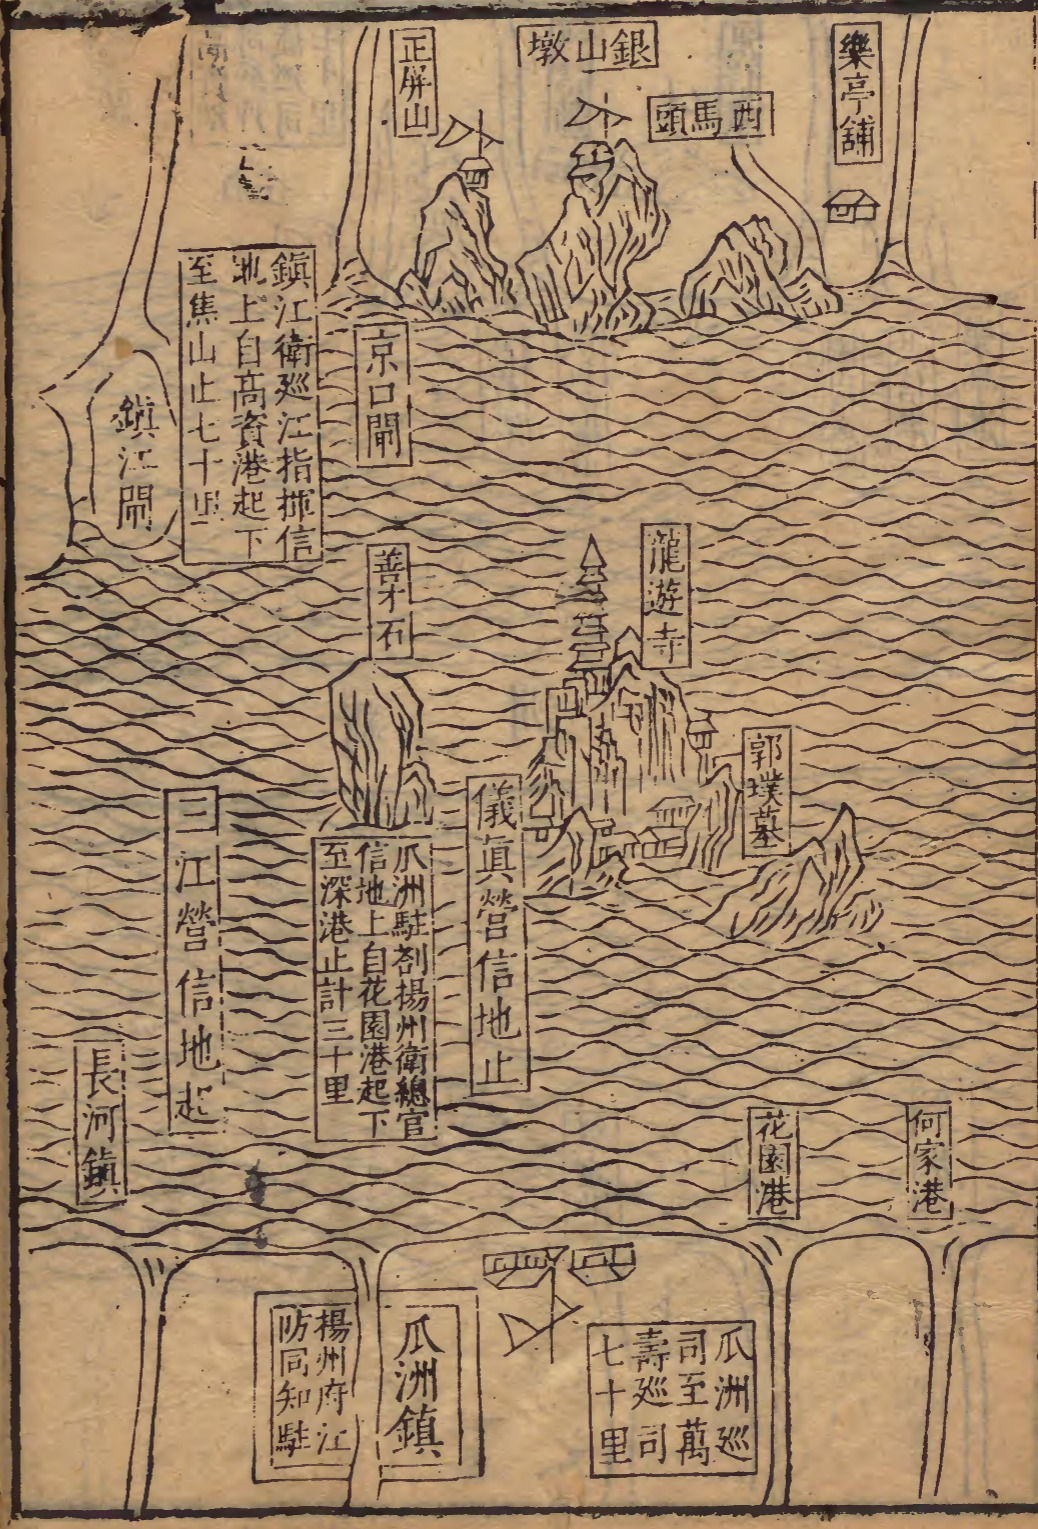 樂亭舖
西馬頭
銀山墩
正屏山
京口閘
鎮江衛廵江指揮信
地上自高資港起下
至焦山止七十里
鎮江閘
龍遊寺
郭璞墓
善才石
儀眞營信地止
瓜洲駐剳揚州衛總官
信地上自花園港起下
至深港止計三十里
三江營信地起
長河鎮
何家港
花園港
瓜洲廵
司至萬
壽廵司
七十里
瓜洲鎮
楊州府江
防同知駐